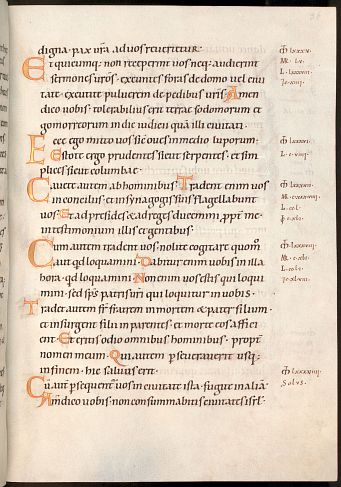 digna · pax ur̄a aduos reuertetur·
Et quicumq; non receperit uos neq; audierint
sermones ur̄os· exeuntes foras de domo uel ciui
tate· excutite puluerem de pedibus uris· Amen
dico uobis· tolerabilius erit terrae sodomorum et
gomorreorum in die iudicii quā illi ciuitati·
Ecce ego mitto uos sic̄ oues inmedio luporum·
Estote ergo prudentes sicut serpentes· et sim
plices sicut columbae·
Cauete autem ab hominibus· Tradent enim uos
in conciliis· et insynagogis suis flagellabunt
uos· Et ad presides &adreges ducemini· ppt̄ me·
intestimonium illis et gentibus·
Cum autem tradent uos· nolite cogitare quom̄
aut qd loquamini· Dabitur enim uobis in illa
hora· qd loquamini· Non enim uos estis qui loqui
mini· sed sp̄s patris ur̄i qui loquitur in uobis·
Tradet autem fr̄ fratrem in mortem· & pater filium·
et insurgent filii in parentes· et morte eos affici
ent· Et eritis odio omnibus hominibus· propt̄
nomen meum· Qui autem pseuerauerit usq;
in finem· hic saluus erit·
Cū aūt psequent̄ uos in ciuitate ista· fugite in aliā·
Am̄ dico uobis· non consummabitis ciuitates isrl̄·